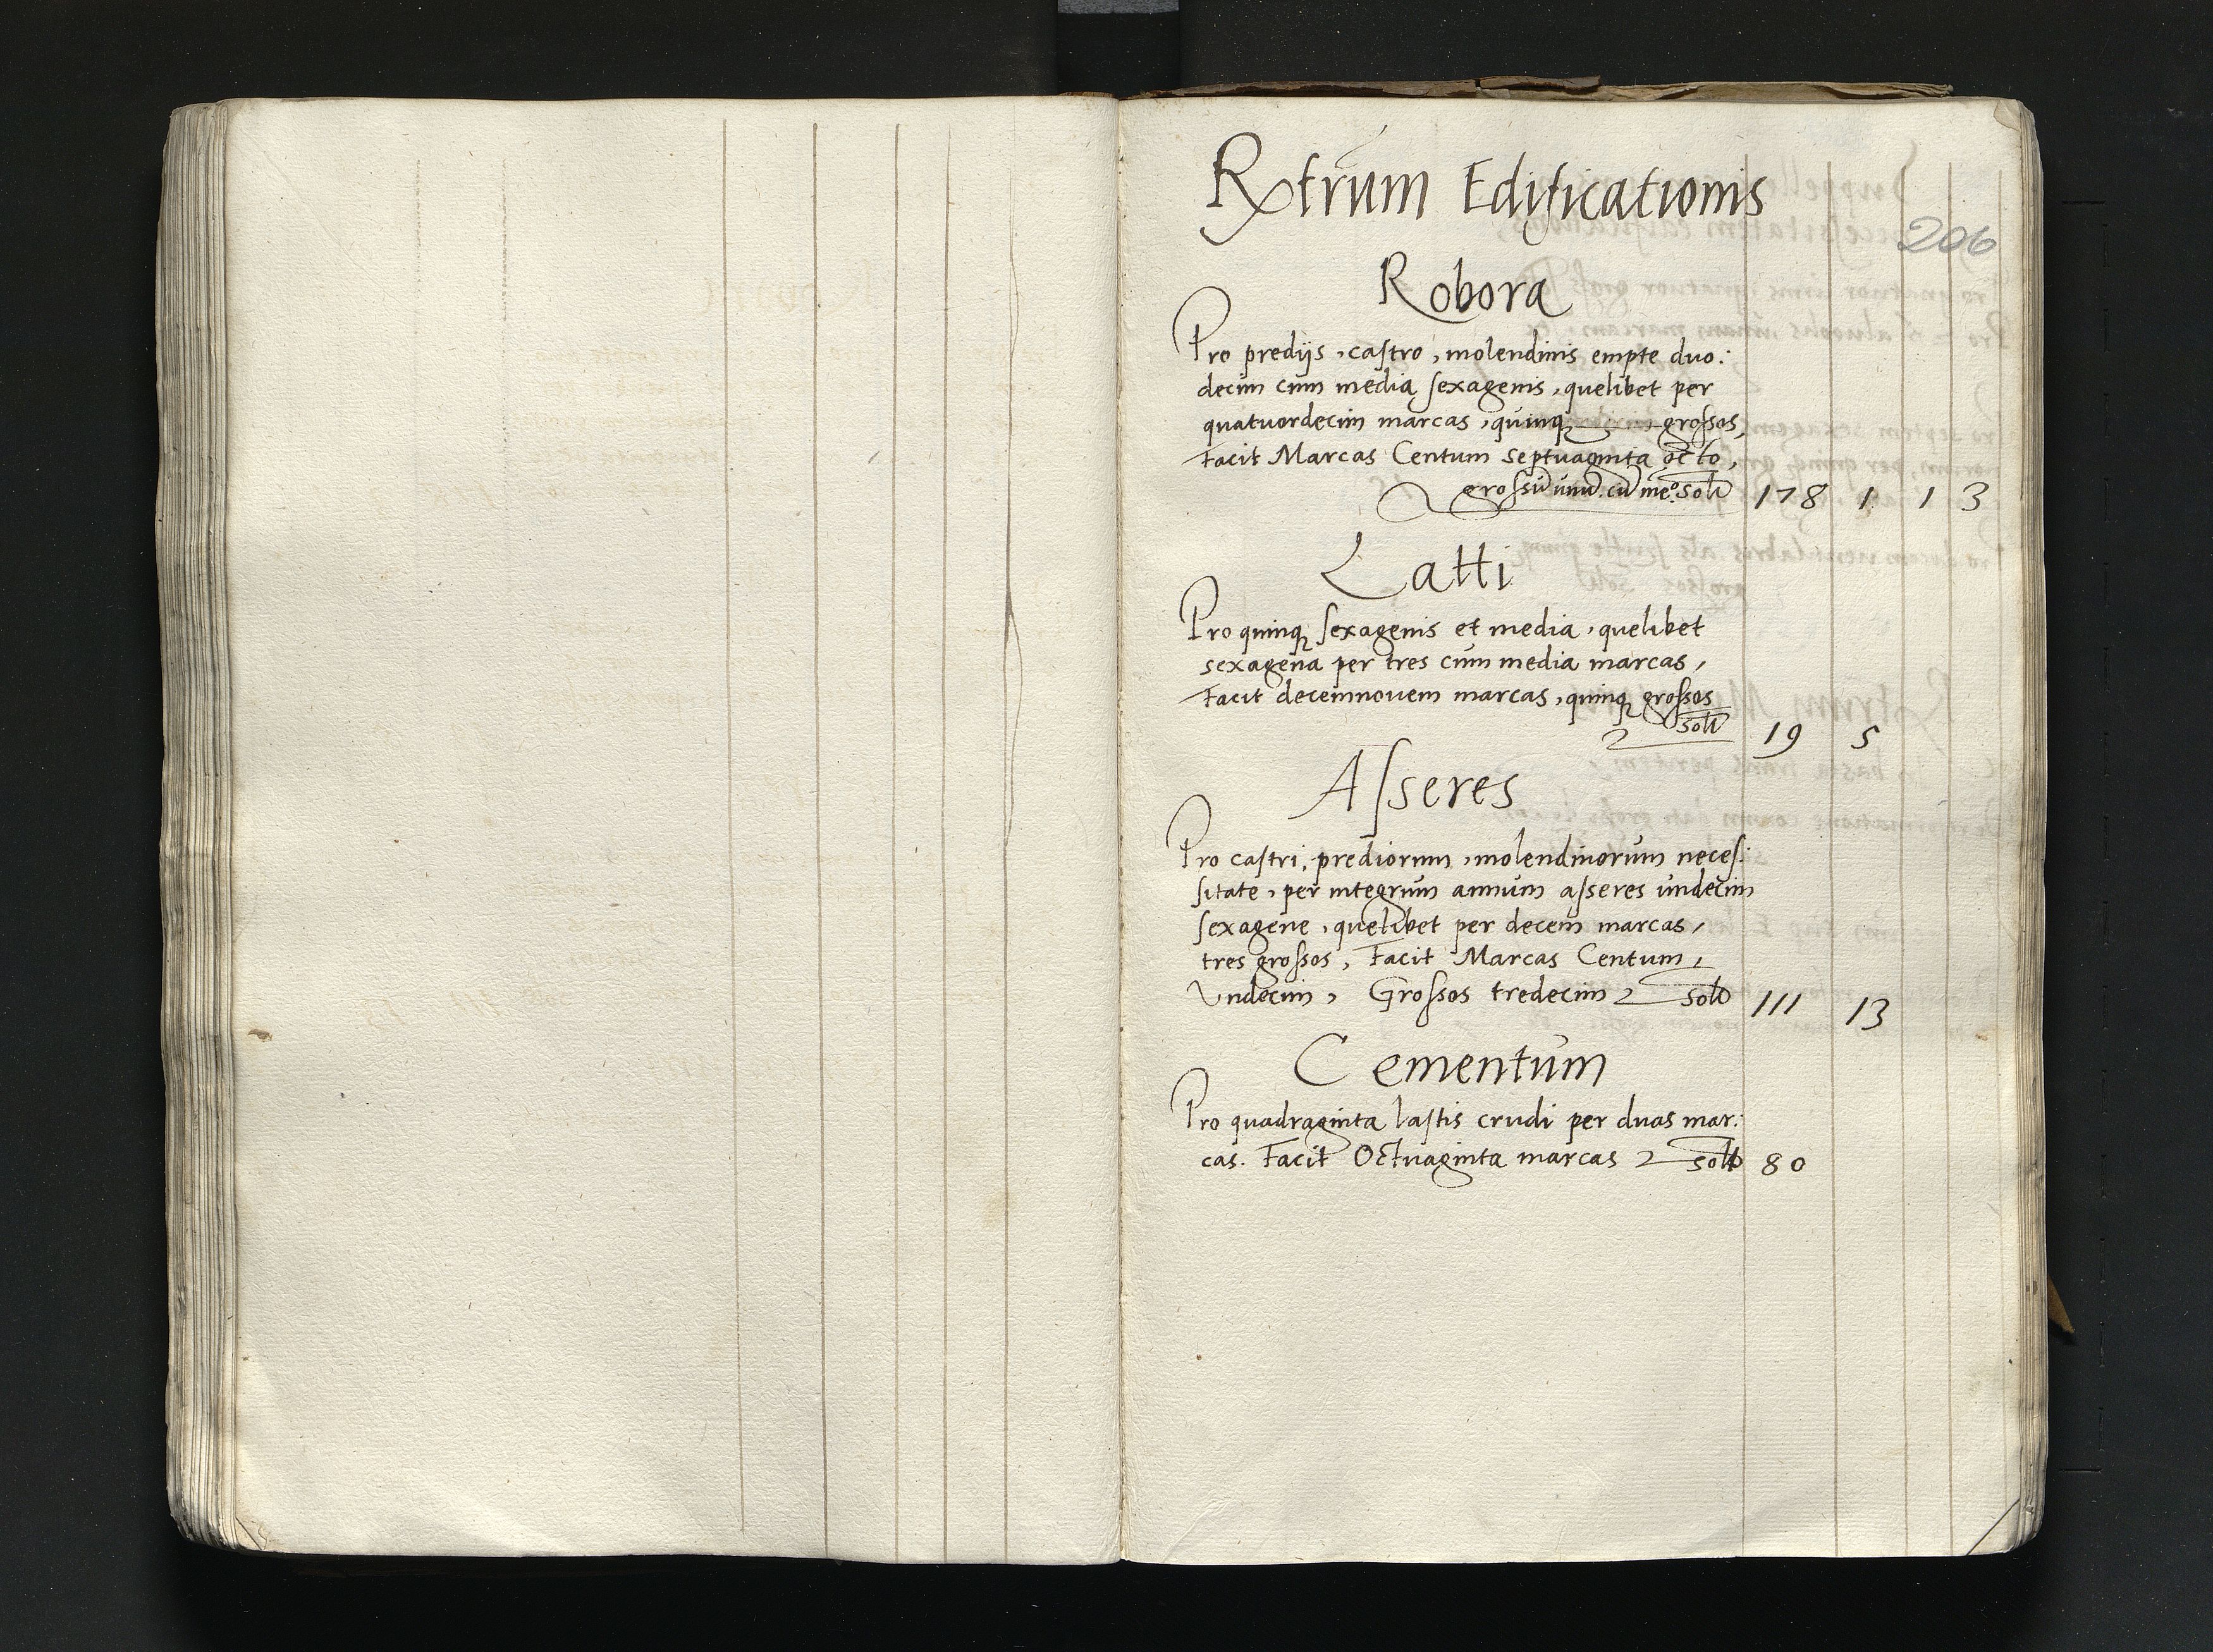 Rxtrum Edificationis
206
Robora
Pro predijs, castro, molendinis empte duo:
decim cum media sexagenis, quelibet per
quatuordecim marcas, quinq grossos,
Facit Marcas Centum septuaginta octo,
grossū unū. cū meº. solt 178 1 1 3
Latti
Pro quinq sexagenis et media, quelibet
sexagena per tres cum media marcas,
Facit decemnovem marcas, quinq grossos
solt 19 5
Asseres
Pro castri, prediorum, molendinorum neces:
sitate, per integrum annum asseres undecim
sexagene, quelibet per decem marcas,
tres grossos, Facit Marcas Centum,
Undecim, Grossos tredecim solt 111 13
Cementum
Pro quadraginta lastis crudi per duas mar:
cas. Facit Octuaginta marcas solt 80